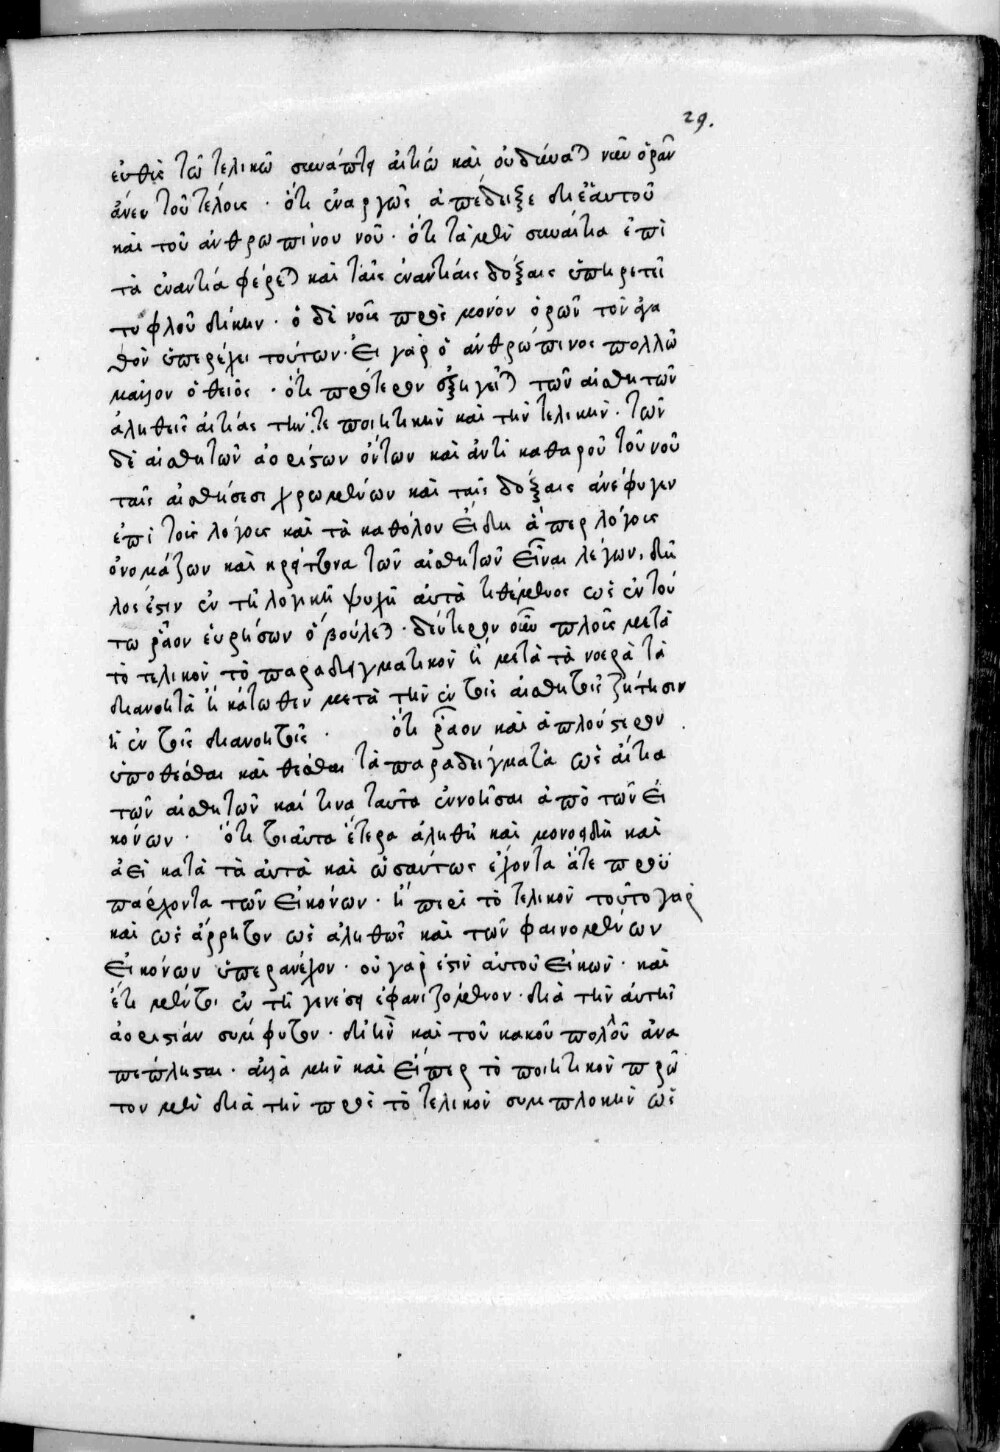 29.
εὐθὺς τῷ τελικῷ συνάπτει αἰτίῳ καὶ οὐ δύναται νοῦν ὁρᾶν
ἄνευ τοῦ τέλους · ὅτι ἐναργῶς ἀπέδειξε δι' ἑαυτοῦ
καὶ τοῦ ἀνθρωπίνου νοῦ · ὅτι τὰ μὲν συναίτια ἐπὶ
τὰ ἐναντία φέρεται καὶ ταῖς ἐναντίαις δόξαις ὑπηρετεῖ
τυφλοῦ δίκην · ὁ δὲ νοῦς πρὸς μόνον ὁρῶν τὸν ἀγα
θὸν ὑπερέχει τούτων · εἰ γὰρ ὁ ἀνθρώπινος πολλῷ
μᾶλλον ὁ θεῖος · ὅτι πρότερον ἐξηγεῖται τῶν αἰσθητῶν
ἀληθεῖς αἰτίας τήν τε ποιητικὴν καὶ τὴν τελικήν · τῶν
δὲ αἰσθητῶν ἀορίστων ὄντων καὶ ἀντὶ καθαροῦ τοῦ νοῦ
ταῖς αἰσθήσεσι χρωμένων καὶ ταῖς δόξαις ἀνέφυγεν
ἐπὶ τοὺς λόγους καὶ τὰ καθόλου εἴδη ἅπερ λόγους
ὀνομάζων καὶ κρείττονα τῶν αἰσθητῶν εἶναι λέγων, δῆ
λός ἐστιν ἐν τῇ λογικῇ ψυχῇ αὐτὰ τιθέμενος ὡς ἐν τού
τῳ ῥᾷον εὑρήσων ὃ βούλεται · δεύτερον οὖν πλοῦς μετὰ
τὸ τελικὸν τὸ παραδειγματικὸν ἢ μετὰ τὰ νοερὰ τὰ
διανοητὰ ἢ κάτωθεν μετὰ τὴν ἐν τοῖς αἰσθητοῖς ζήτησιν
ἡ ἐν τοῖς διανοητοῖς · ὅτι ῥᾷον καὶ ἁπλούστερον
ὑποθέσθαι καὶ θεᾶσθαι τὰ παραδείγματα ὡς αἴτια
τῶν αἰσθητῶν καί τινα ταῦτα ἐννοῆσαι ἀπὸ τῶν εἰ
κόνων · ὅτι τοιαῦτα ἕτερα ἀληθῆ καὶ μονοειδῆ καὶ
ἀεὶ κατὰ τὰ αὐτὰ καὶ ὡσαύτως ἔχοντα ἅτε προϋ
πάρχοντα τῶν εἰκόνων · ἢ περὶ τὸ τελικὸν τοῦτο γὰρ
καὶ ὡς ἄρρητον ὡς ἀληθῶς καὶ τῶν φαινομένων
εἰκόνων ὑπερανέχον · οὐ γάρ ἐστιν αὐτοῦ εἰκών · καὶ
ἔτι μέντοι ἐν τῇ γενέσει ἐφανιζόμενον · διὰ τὴν αὐτῆς
ἀοριστίαν σύμφυτον · δι' ἣν καὶ τοῦ κακοῦ πολλοῦ ἀνα
πέπλησται · ἀλλὰ μὴν καὶ εἴπερ τὸ ποιητικὸν πρῶ
τον μὲν διὰ τὴν πρὸς τὸ τελικὸν συμπλοκὴν ὡς